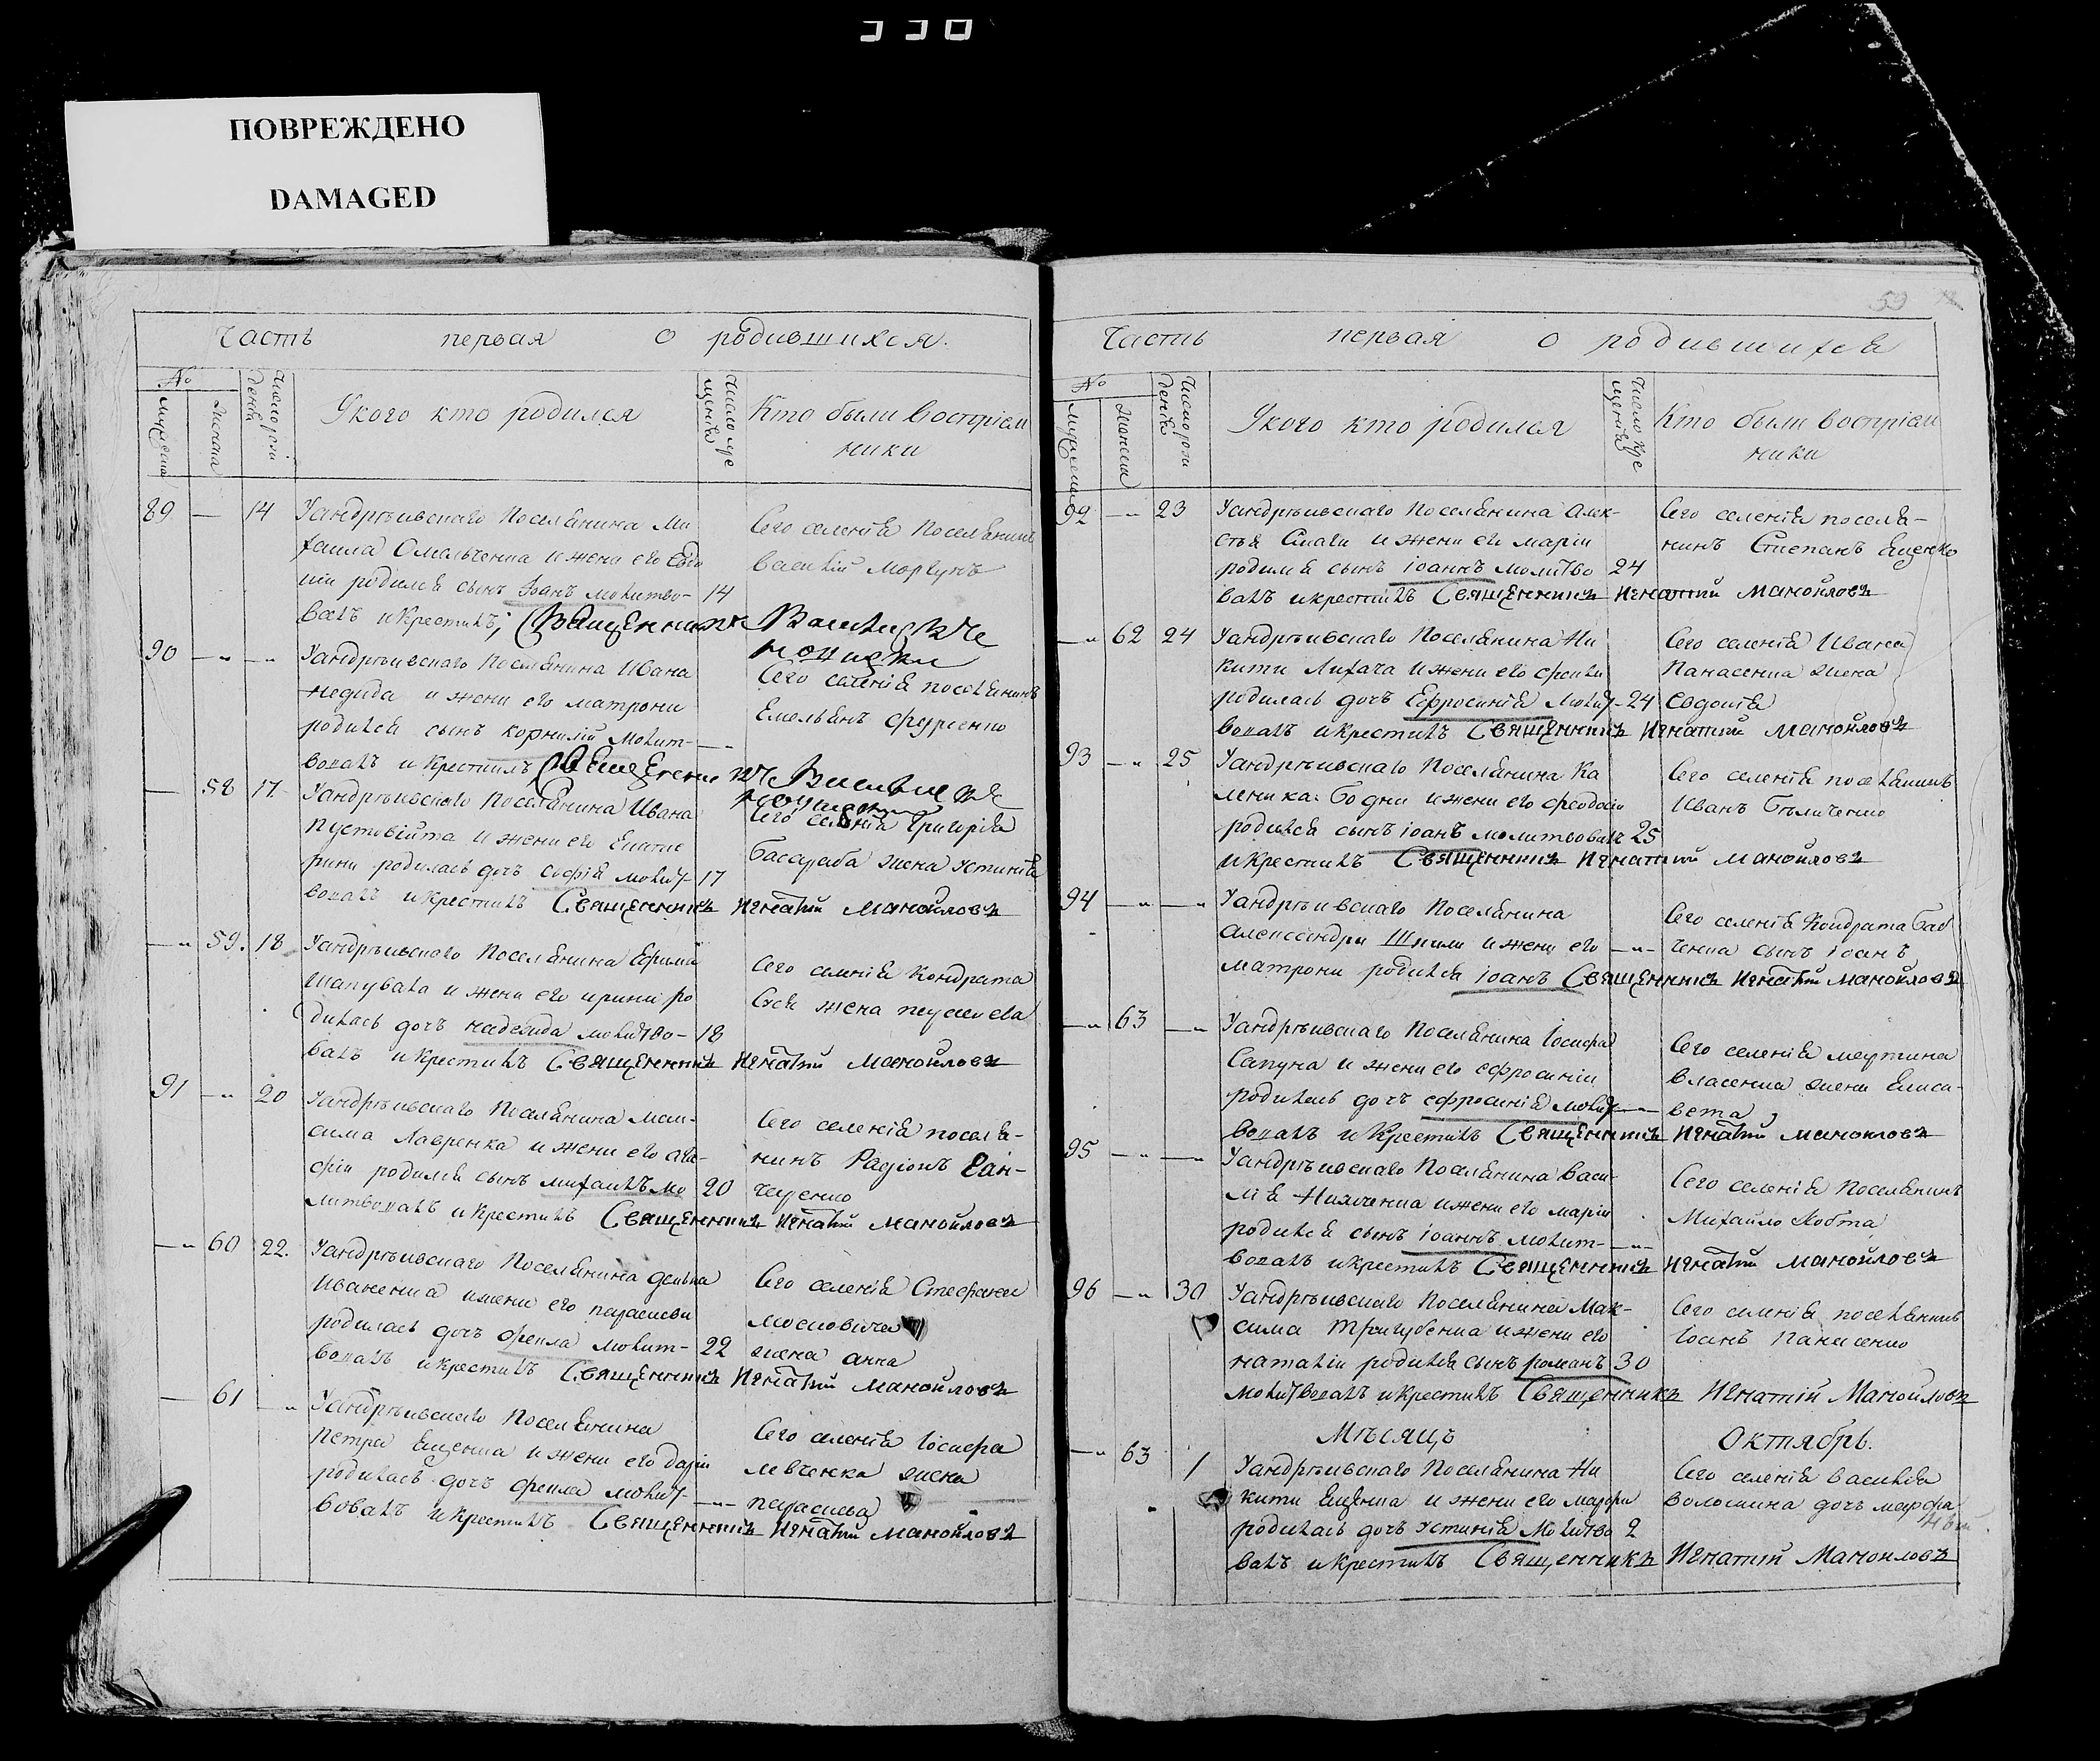 330
ПОВРЕЖДЕНО
DAMAGED
Часть первая о родившихся.
№
мужеска
женска
Число рож
денія
Укого кто родился
Число кре
щенія
Кто были воспріем
ники
89 — 14 Уандрѣивскаго Поселянина Ми
хаила Омельченка и жени его Евдо
кіи родился сынъ Іоанъ молитво- 14
валъ и крестилъ, Священникъ
Сего селенія Поселянинъ
Василій Моргунъ
90 — „ — „ Уандрѣивскаго Поселянина Ивана
недида и жени его матрони
родился сынъ корнилій молит- — „
вовалъ и крестилъ Священникъ Василие
Сего селенія поселянинъ
Емельянъ
— 58 17 Уандрѣивскаго Поселянина Ивана
Пустовійта и жени его Екате
рини родилась дочъ софія молит- 17
вовалъ и крестилъ Священникъ Игнатій Манойловъ
Сего селенія Григорія
Басараба жена устинія
— „ 59. 18 Уандрѣивскаго Поселянина Ефима
Шаповала и жени его ирини ро
дилась дочъ надежда молитво- 18
валъ и крестилъ Священникъ Игнатій Манойловъ
Сего селенія кондрата
жена
91 — „ 20 Уандрѣивскаго Поселянина мак-
сима Лавренка и жени его ага-
фіи родился сынъ михаилъ мо 20
литвовалъ и крестилъ Священникъ Игнатій Манойловъ
Сего селенія поселя-
нинъ Радіонъ Ган-
— „ 60 22. Уандрѣивскаго Поселянина
Иваненка и жени его параскеви
родилась дочъ фекла молит- 22
вовалъ и крестилъ Священникъ Игнатій Манойловъ
Сего селенія Стефана
московича
жена анна
— 61 — „ Уандрѣивскаго Поселянина
Петра Ещенка и жени его даріи
родилась дочъ фекла молит- — „
вовалъ и крестилъ Священникъ Игнатій Манойловъ
Сего селенія Іосифа
левченка жена
парасиева
59
Часть первая о родившихся
№
мужеска
женска
Число рож
денія
Укого кто родился
Число кре
щенія
Кто были воспріем
ники
92 — „ 23 Уандрѣивскаго Поселянина алек-
сѣя и жени его маріи
родился сынъ іоаннъ молитво 24
валъ и крестилъ Священникъ Игнатій Манойловъ
Сего селенія поселя-
нинъ Стіепанъ Ещенко
— „ 62 24 Уандрѣивскаго Поселянина Ни
кити Лихача и жени его фекли
родилась дочъ Ефросинія молит- 24
вовалъ и крестилъ Священникъ Игнатій Манойловъ
Сего селенія Ивана
Панасенка жена
Евдокія
93 — „ 25 Уандрѣивскаго Поселянина Ка
леника Бодни и жени его феодосіи
родился сынъ іоанъ молитвовалъ 25
и крестилъ Священникъ Игнатій Манойловъ
Сего селенія поселянинъ
Иванъ Бѣличенко
94 — „ — „ Уандрѣивскаго Поселянина
Александри Шпили и жени его — „
матрони родился іоанъ Священникъ Игнатій Манойловъ
Сего селенія Кондрата Баб
ченка сынъ іоанъ
— „ 63 — „ Уандрѣивскаго Поселянина Іосифа
Сапуна и жени его ефросиніи
родилась дочъ ефросинія молит- — „
вовалъ и крестилъ Священникъ Игнатій Манойловъ
Сего селенія мартина
власенка жена Елиса-
вета
95 — „ — „ Уандрѣивскаго Поселянина Васи-
лія и жени его маріи
родился сынъ іоаннъ молит- — „
вовалъ и крестилъ Священникъ Игнатій Манойловъ
Сего селенія Поселянинъ
Михайло Кобта
96 — „ 30 Уандрѣивскаго Поселянина Мак-
сима Тригубенка и жени его
наталіи родился сынъ романъ 30
молитвовалъ и крестилъ Священникъ Игнатій Манойловъ
Сего селенія поселянинъ
Іоанъ Панасенко
Мѣсяцъ Октябрь.
— „ 63 1 Уандрѣивскаго Поселянина Ни
кити Ещенка и жени его марфи
родилась дочъ устинія молитво 2
валъ и крестилъ Священникъ Игнатій Манойловъ
Сего селенія василія
волошина дочъ марфа